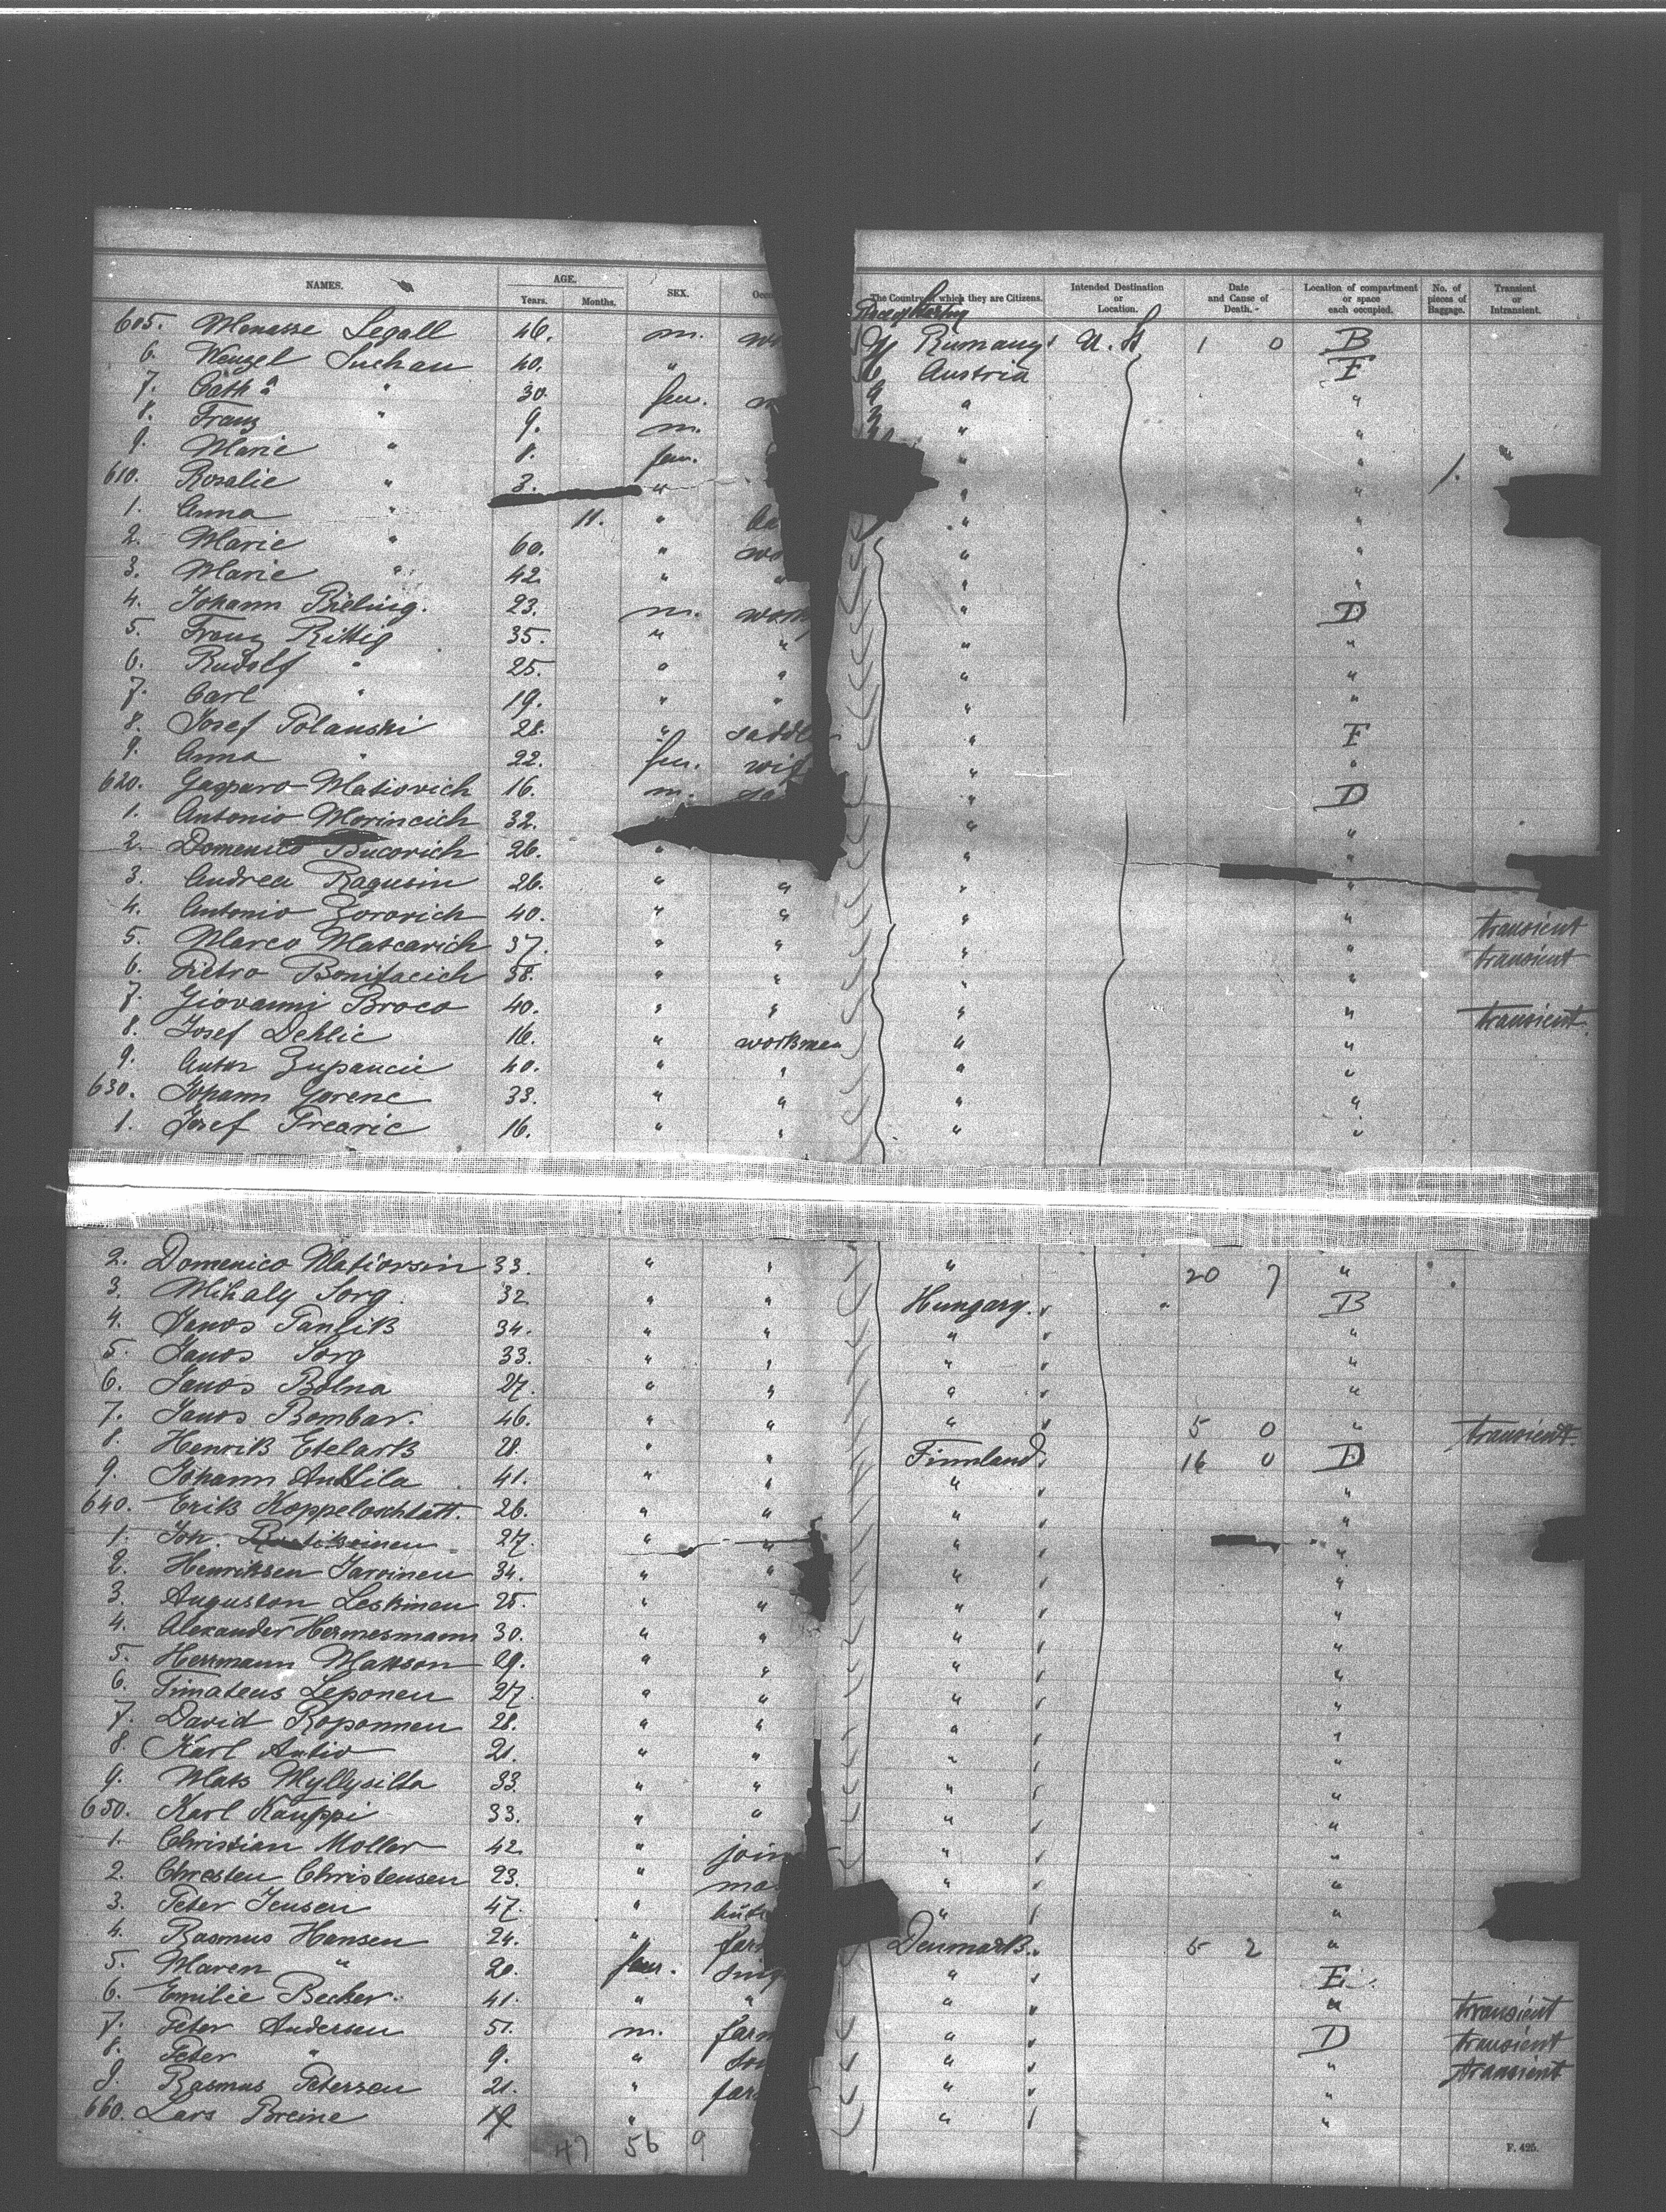 NAMES. AGE. SEX. The Country of which they are Citizens. Intended Destination or Location. Date and Cause of Death. Location of compartment or space each occupied. No. of pieces of Baggage. Transient or Intransient.
Years. Months.
605. Menasse Segall 46. m. Rumany U. S. 1 0 B
6. Wenzel Suchan 40. " Austria F
7. Cath " 30. fem. " "
8. Franz " 9. m. " "
9. Marie " 8. fem. " "
610. Rosalie " 3. " " " 1.
1. Anna " 11. " " "
2. Marie " 60. " " "
3. Marie " 42. " " " "
4. Johann Bieling. 23. m. work " D
5. Franz Rittig 35. " " " "
6. Rudolf " 25. " " " "
7. Carl " 19. " " " "
8. Josef Polanski 28. " saddle " F
9. Anna " 22. fem. wif " "
620. Gasparo Matiovich 16. m. " D
1. Antonio Morincich 32. " "
2. Domenico Bucovich 26. " " "
3. Andrea Ragusin 26. " " " "
4. Antonio Zorovich 40. " " " " transient
5. Marco Matcovich 37. " " " " transient
6. Pietro Bonifacich 38. " " " "
7. Giovanni Broco 40. " " " " transient
8. Josef Dehlic 16. " workmen " "
9. Anton Zupancic 40. " " " "
630. Johann Gorenc 33. " " " "
1. Josef Prearic 16. " " " "
2. Domenico Matiovsin 33. " " " 20 7 "
3. Mihaly Sorg. 32 " " Hungary. " B
4. Janos Pantik 34. " " " "
5. Janos Sorg 33. " " " "
6. Janos Bolna 27. " " " "
7. Janos Bombar. 46. " " " 5 0 " transient
8. Henrik Etelark 28. " " Finnland. 16 0 D
9. Johann Anttila 41. " " " "
640. Erik 26. " " " "
1. Joh. 27. " " " "
2. Henriksen Jarvinen 34. " " " "
3. Auguston Leskinen 25. " " " "
4. Alexander Hermesmann 30. " " " "
5. Herrmann Mattson 29. " " " "
6. Timateus Leponen 27. " " " "
7. David Roponnen 28. " " " "
8. Karl Antio 21. " " " "
9. Mats Myllysilta 33. " " " "
650. Karl Kauppi 33. " " " "
1. Christian Moller 42. " join " "
2. Chresten Christensen 23. " ma " "
3. Peter Jensen 47. " " "
4. Rasmus Hansen 24. " farm Denmark. 5 2 "
5. Maren " 20. fem. sing " E
6. Emilie Becker. 41. " " " " transient
7. Peter Andersen 51. m. farm " D transient
8. Peter " 9. " son " " transient
9. Rasmus Petersen 21. " far " "
660. Lars Breine 19 " " "
47 56 9
F. 425.